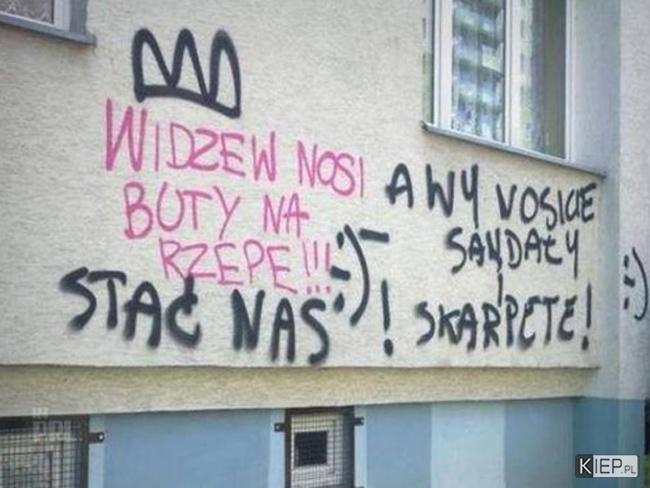 WIDZEW NOSI
BUTY NA
RZEPĘ!!!
STAĆ NAS :-) !
A WY NOSICIE
SANDAŁY
I
SKARPETE! :)
KIEP.PL